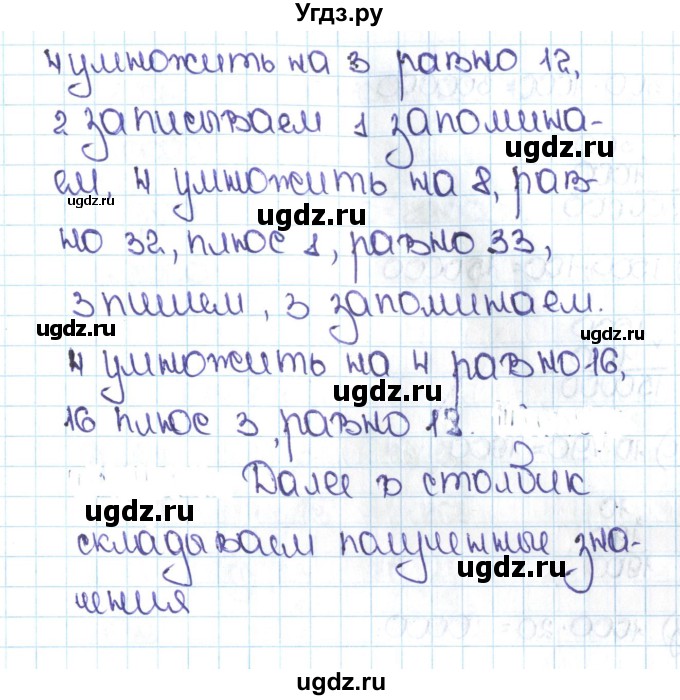 Угдз.ру
4 умножить на 3 равно 12,
2 записываем 1 запомина-
ugdz.ru
ugdz.ru
ем, 4 умножить на 8, рав-
ugdz.ru
ugdz.ru
но 32, плюс 1, равно 33,
3 пишем, 3 запоминаем.
ugdz.ru
ugdz.ru
4 умножить на 4 равно 16,
ugdz.ru
16 плюс 3, равно 19
Далее в столбик
ugdz.ru
складываем полученные зна-
ugdz.ru
чения